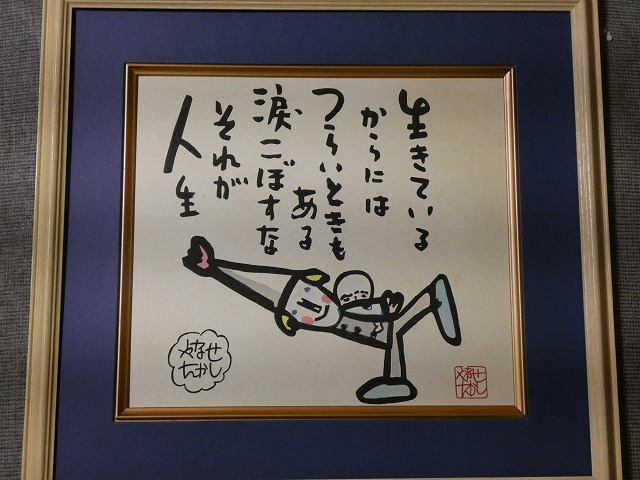 生きている
からには
つらいときも
ある
涙こぼすな
それが
人生
やなせ
たかし
やなせ
たかし